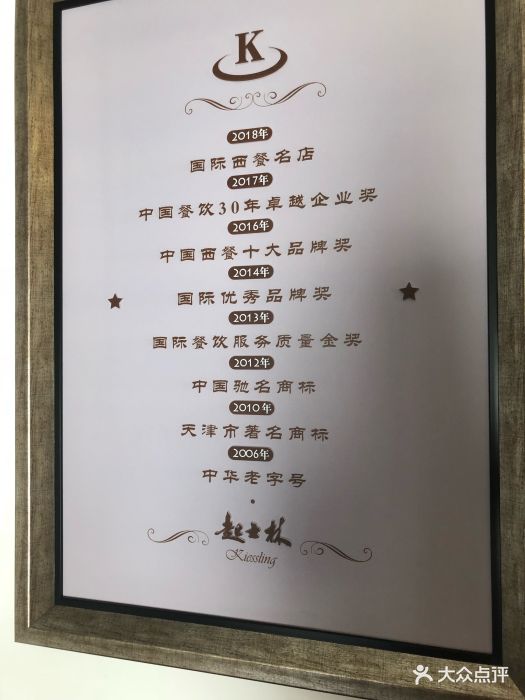 K
2018年
国际西餐名店
2017年
中国餐饮30年卓越企业奖
2016年
中国西餐十大品牌奖
2014年
国际优秀品牌奖
2013年
国际餐饮服务质量金奖
2012年
中国驰名商标
2010年
天津市著名商标
2006年
中华老字号
起士林
Kiessling
大众点评